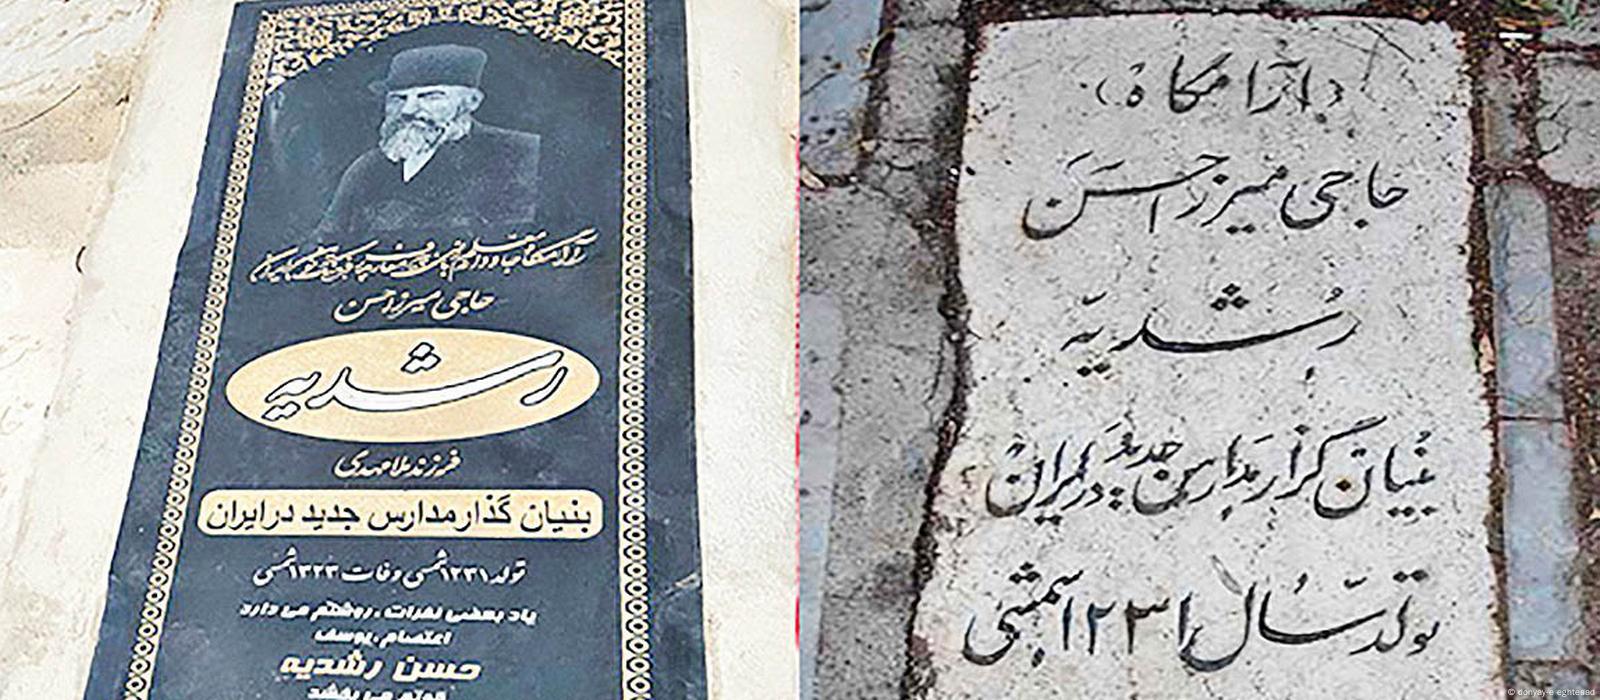 آرامگاه
حاجی میرزا حسن
رشدیه
فرزند ملا مهدی
بنیان گذار مدارس جدید در ایران
تولد ۱۲۳۱ شمسی وفات ۱۳۲۳ شمسی
یاد بعضی نفرات، روشنم می دارد
اعتصام، یوسف
حسن رشدیه
قوتم می بخشد
(آرامگاه)
حاجی میرزا حسن
رشدیه
بنیان گزار مدارس جدید در ایران
تولد سال ۱۲۳۱ شمسی
© donyay-e eghtesad